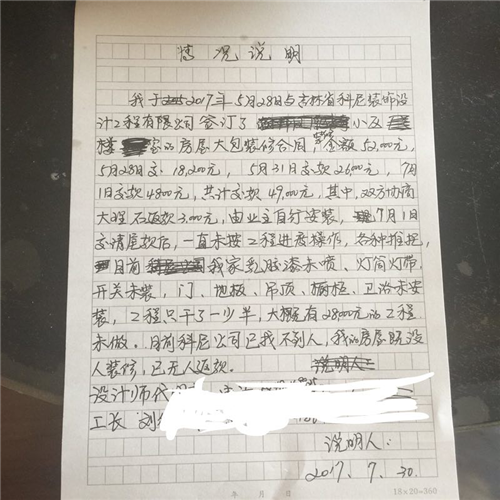 情况说明
我于2017年5月28日与吉林省科尼装饰设
计工程有限公司签订了 小区
楼 室的房屋大包装修合同,金额52,000元,
5月28日交18,200元,5月31日交款26,000元,7月
1日交款4800元,共计交款49,000元,其中,双方协商
大理石返款3,000元,由业主自行安装,7月1日
交清尾款后,一直未按工程进度操作,各种推拖,
目前 我家乳胶漆未喷、灯筒灯带、
开关未装,门、地板、吊顶、橱柜、卫浴未安
装,工程只干了一少半,大概有28000元的工程
未做。目前科尼公司已找不到人,我的房屋既没
人装修,已无人返款。
说明人:
设计师代
工长 刘
说明人:
2017.7.30.
年 月 日
18×20=360